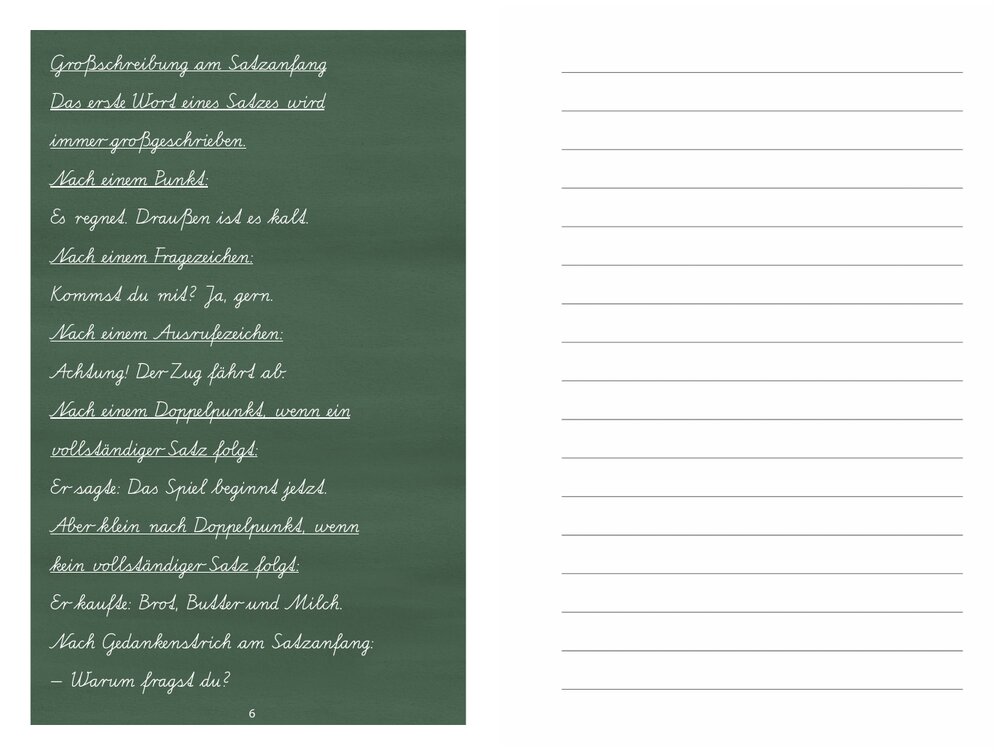 Großschreibung am Satzanfang
Das erste Wort eines Satzes wird
immer großgeschrieben.
Nach einem Punkt:
Es regnet. Draußen ist es kalt.
Nach einem Fragezeichen:
Kommst du mit? Ja, gern.
Nach einem Ausrufezeichen:
Achtung! Der Zug fährt ab.
Nach einem Doppelpunkt, wenn ein
vollständiger Satz folgt:
Er sagte: Das Spiel beginnt jetzt.
Aber klein nach Doppelpunkt, wenn
kein vollständiger Satz folgt:
Er kaufte: Brot, Butter und Milch.
Nach Gedankenstrich am Satzanfang:
– Warum fragst du?
6